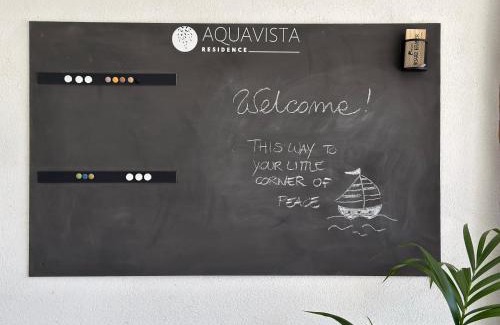 AQUAVISTA
RESIDENCE
Welcome!
THIS WAY TO
YOUR LITTLE
CORNER OF
PEACE